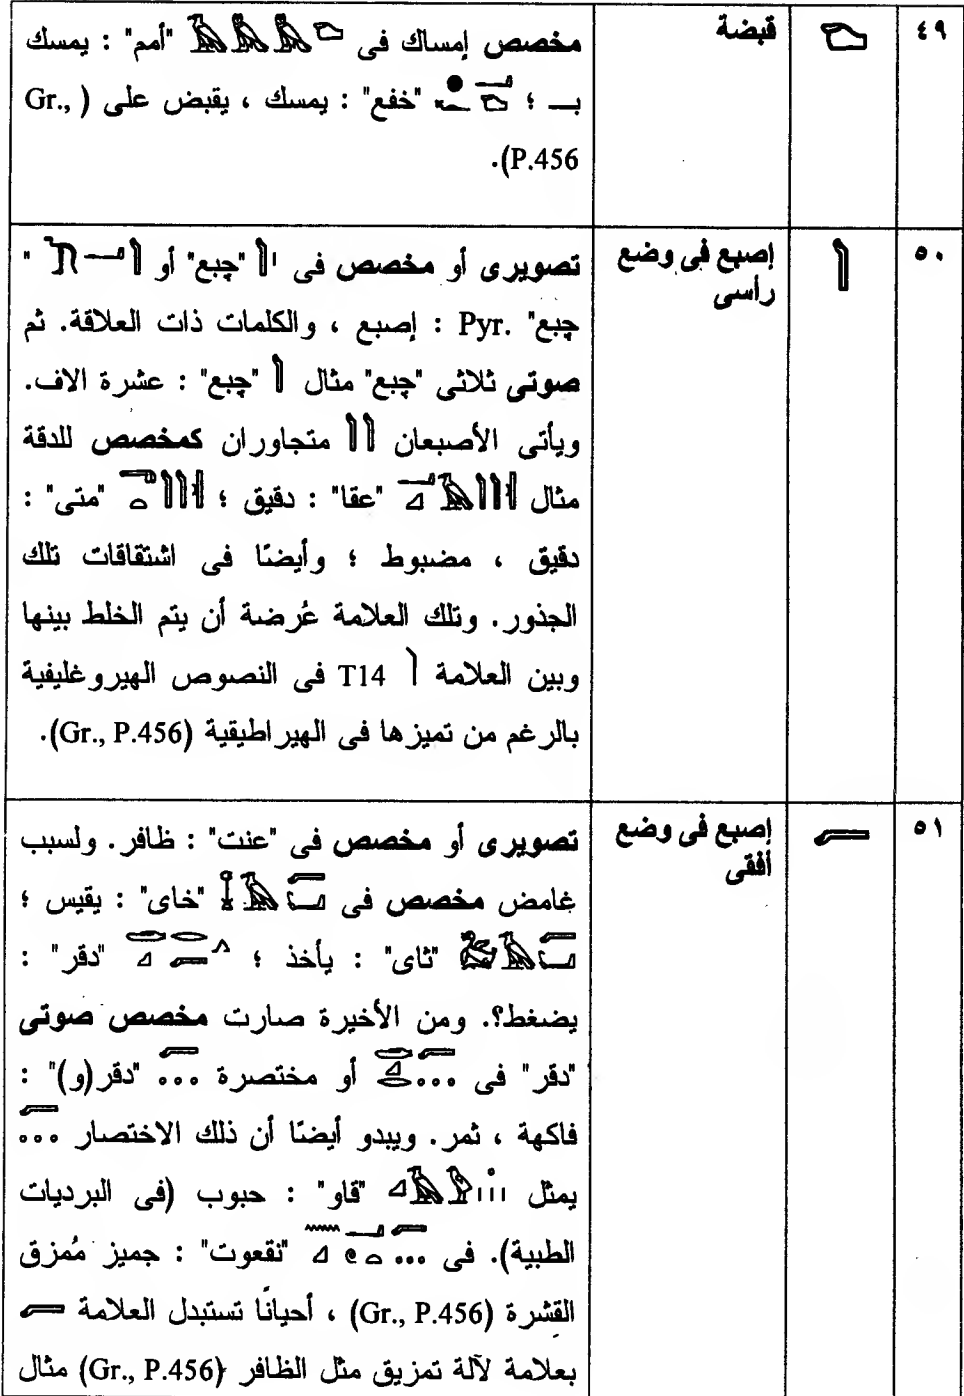 ٤٩ قبضة مخصص إمساك فى "أمم" : يمسك
بـ ؛ "خفع" : يمسك ، يقبض على (Gr.,
P.456).
٥٠ إصبع فى وضع تصويرى أو مخصص فى "چبع" أو "
رأسى چبع" Pyr. : إصبع ، والكلمات ذات العلاقة. ثم
صوتى ثلاثى "چبع" مثال "چبع" : عشرة الاف.
ويأتى الأصبعان متجاوران كمخصص للدقة
مثال "عقا" : دقيق ؛ "متى" :
دقيق ، مضبوط ؛ وأيضًا فى اشتقاقات تلك
الجذور. وتلك العلامة عُرضة أن يتم الخلط بينها
وبين العلامة T14 فى النصوص الهيروغليفية
بالرغم من تميزها فى الهيراطيقية (Gr., P.456).
٥١ إصبع فى وضع تصويرى أو مخصص فى "عنت" : ظافر. ولسبب
أفقى غامض مخصص فى "خاى" : يقيس ؛
"ثاى" : يأخذ ؛ "دقر" :
يضغط؟. ومن الأخيرة صارت مخصص صوتى
"دقر" فى أو مختصرة "دقر(و)" :
فاكهة ، ثمر. ويبدو أيضًا أن ذلك الاختصار
يمثل "قاو" : حبوب (فى البرديات
الطبية). فى "نقعوت" : جميز مُمزق
القشرة (Gr., P.456) ، أحيانًا تستبدل العلامة
بعلامة لآلة تمزيق مثل الظافر (Gr., P.456) مثال